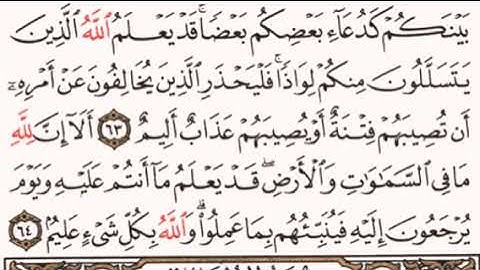 بَيْنَكُمْ كَدُعَآءِ بَعْضِكُم بَعْضًاۚ قَدْ يَعْلَمُ ٱللَّهُ ٱلَّذِينَ
يَتَسَلَّلُونَ مِنكُمْ لِوَاذًاۚ فَلْيَحْذَرِ ٱلَّذِينَ يُخَالِفُونَ عَنْ أَمْرِهِۦٓ
أَن تُصِيبَهُمْ فِتْنَةٌ أَوْ يُصِيبَهُمْ عَذَابٌ أَلِيمٌ ٦٣ أَلَآ إِنَّ لِلَّهِ
مَا فِى ٱلسَّمَٰوَٰتِ وَٱلْأَرْضِۖ قَدْ يَعْلَمُ مَآ أَنتُمْ عَلَيْهِ وَيَوْمَ
يُرْجَعُونَ إِلَيْهِ فَيُنَبِّئُهُم بِمَا عَمِلُوا۟ۗ وَٱللَّهُ بِكُلِّ شَىْءٍ عَلِيمٌۢ ٦٤